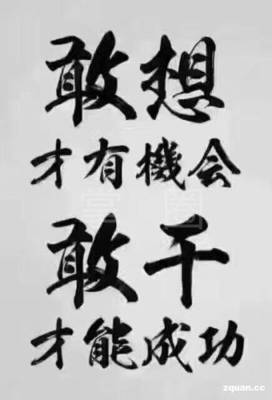 敢想
才有機会
敢干
才能成功
zquan.cc